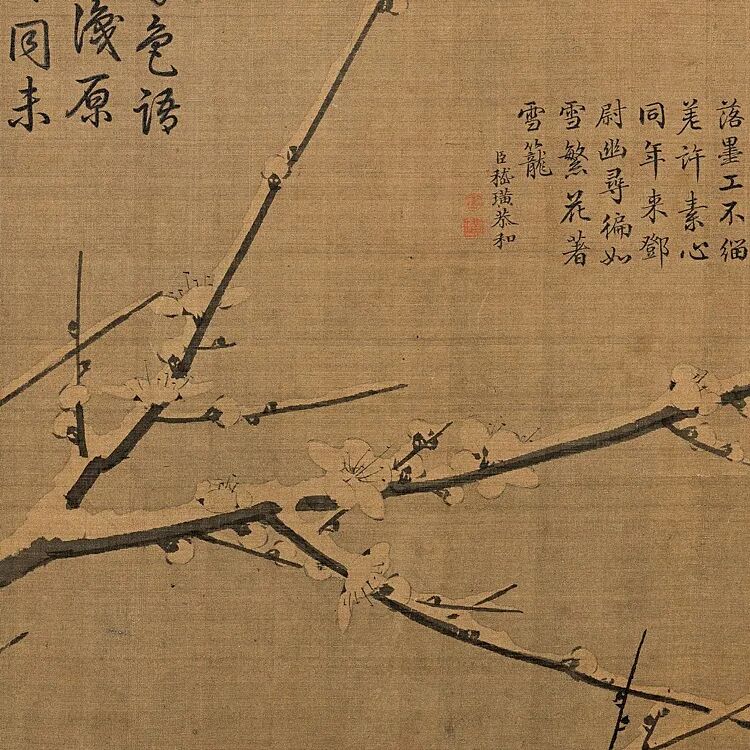 落墨工不緇
羌許素心
同年来鄧
尉幽尋徧如
雪繁花著
雪籠
臣嵇璜恭和
色語
淺原
同未